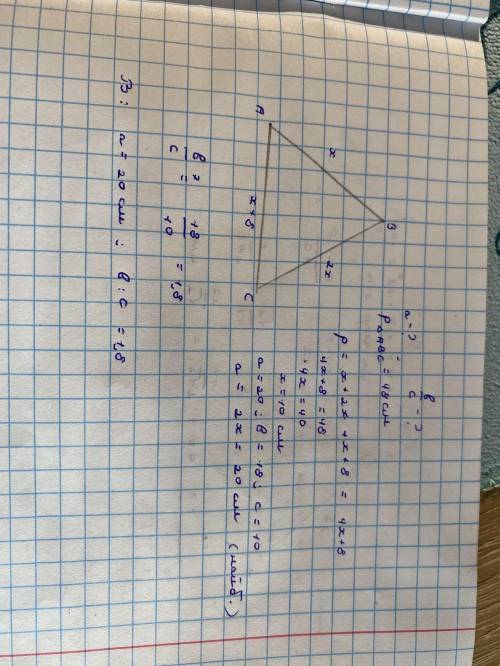 a = ? ; в/c = ?
P△ABC = 48 см
P = x + 2x + x + 8 = 4x + 8
4x + 8 = 48
4x = 40
x = 10 см
a = 20 ; в = 18 ; c = 10
a = 2x = 20 см (найб.)
A
B
C
x
2x
x + 8
в/c = 18/10 = 1,8
В: a = 20 см ; в : c = 1,8